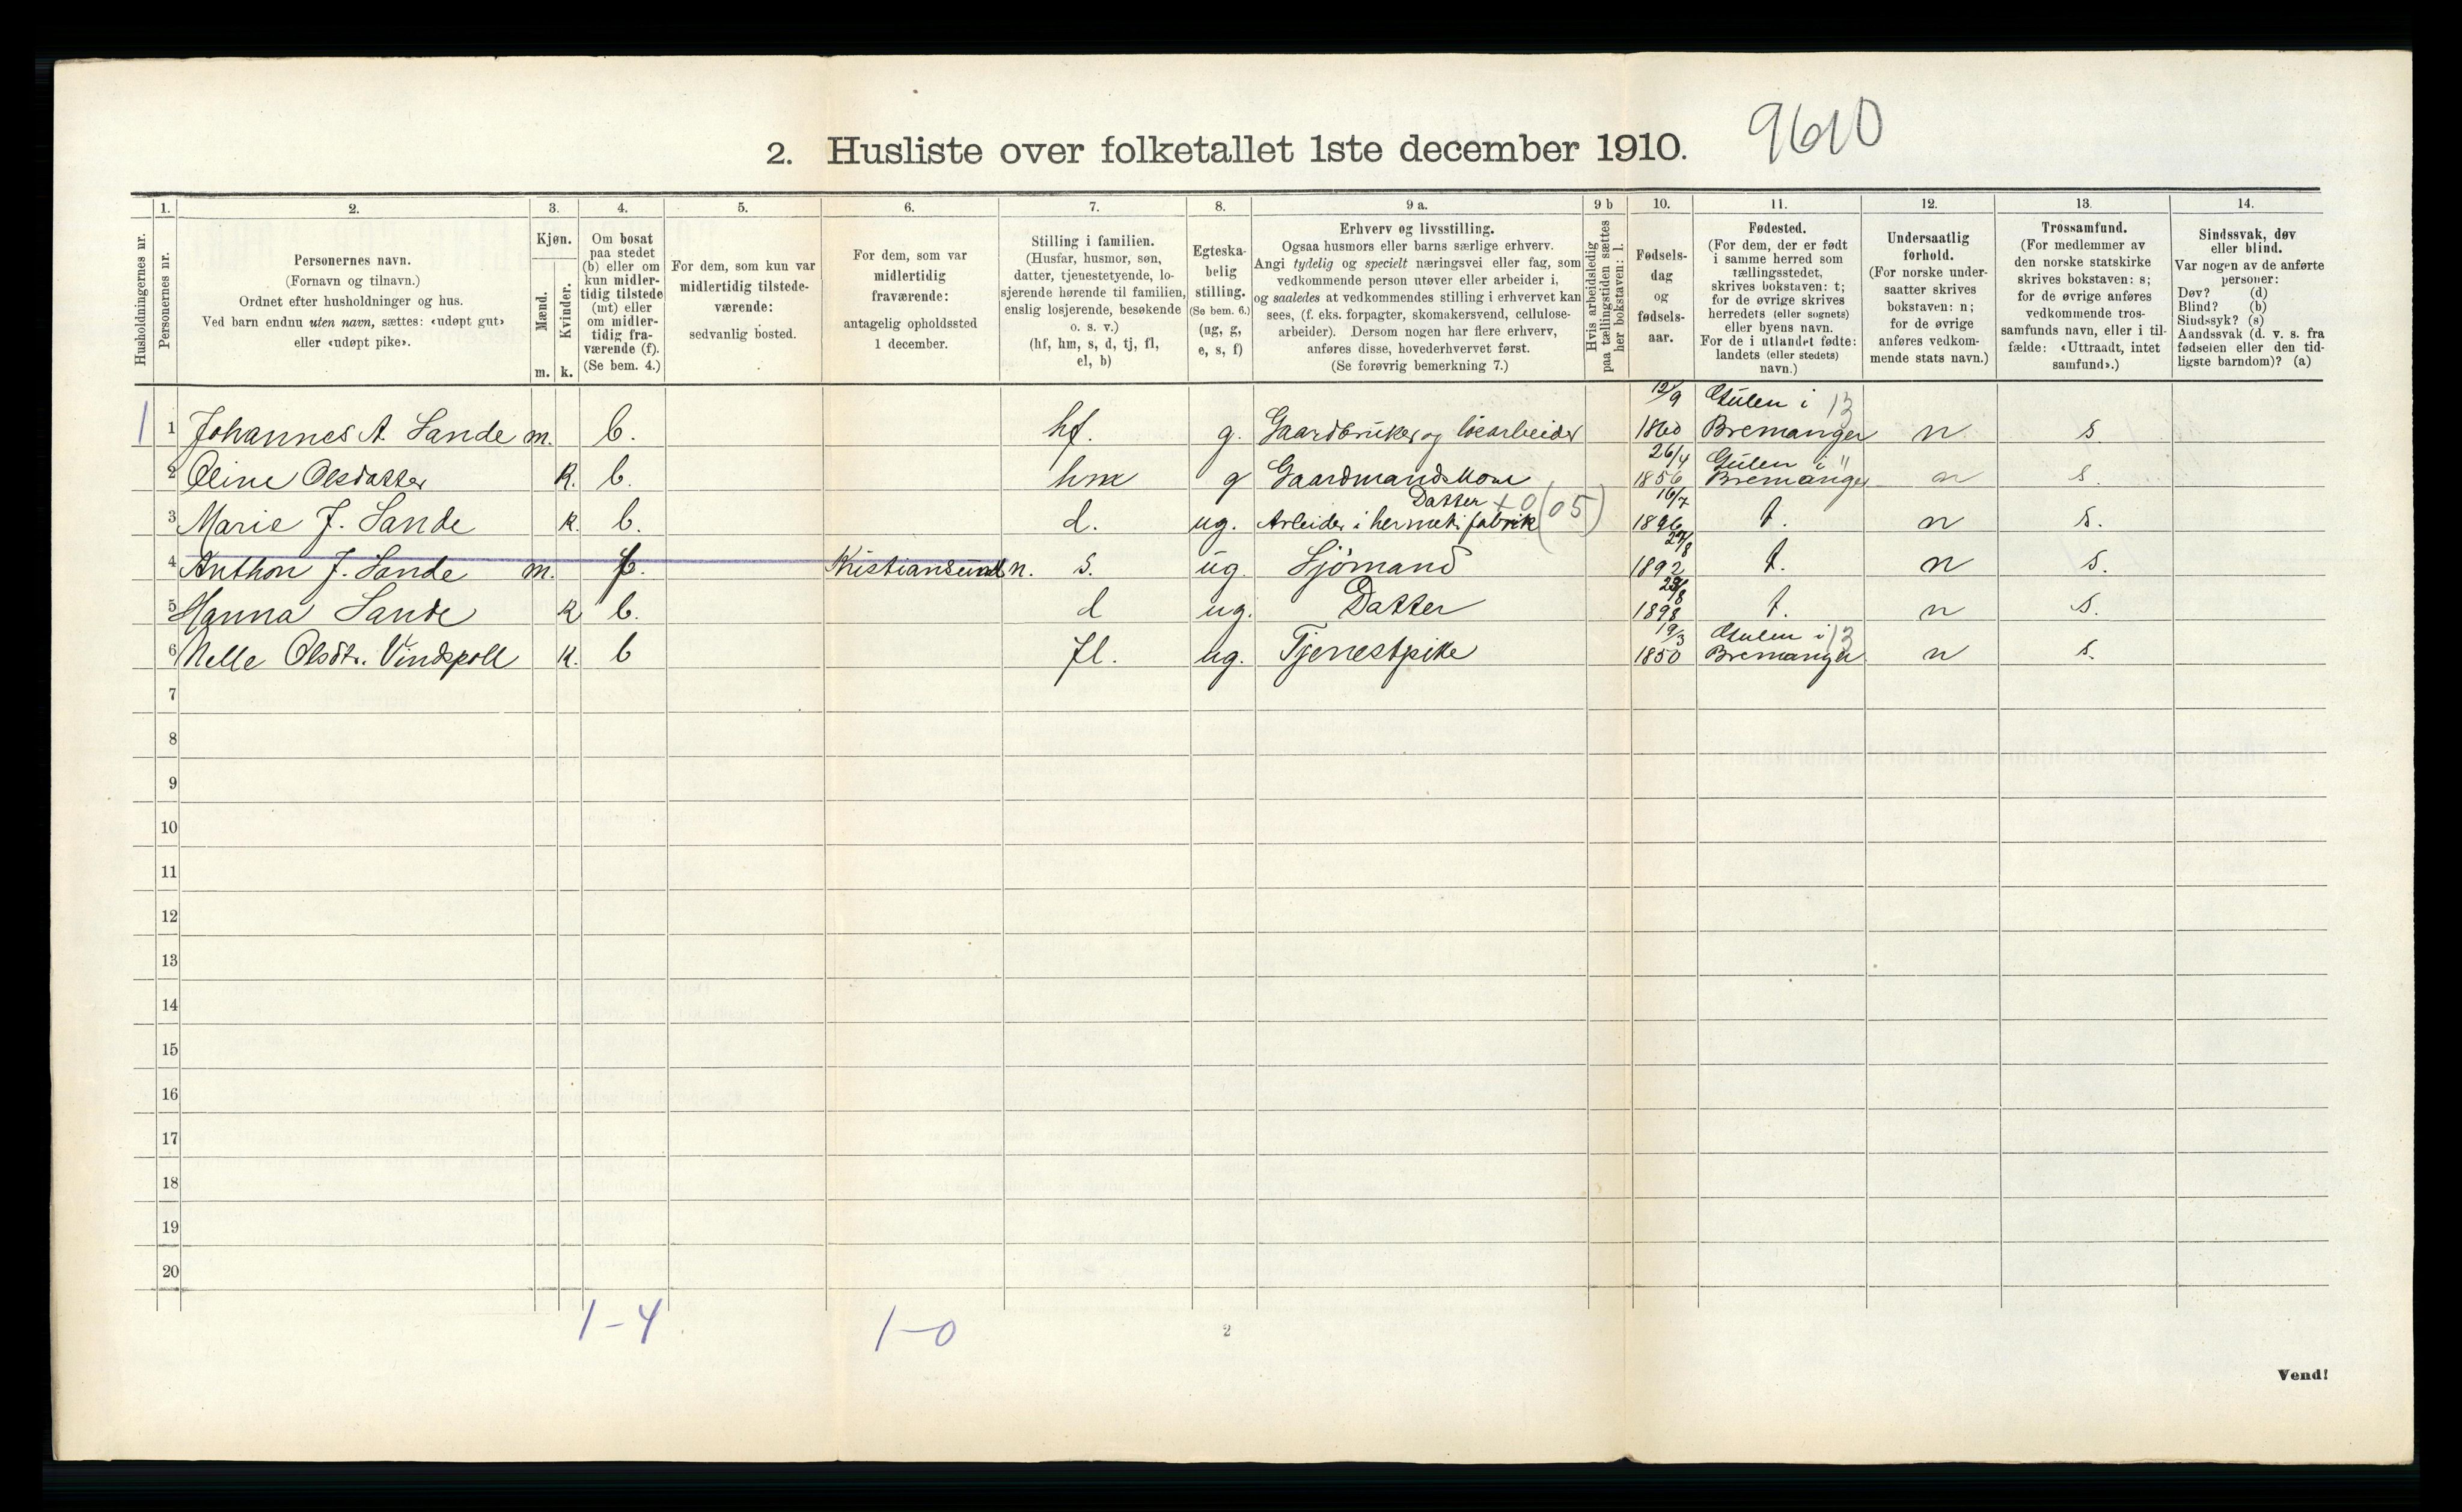 2. Husliste over folketallet 1ste december 1910. 9610
1. 2. 3. 4. 5. 6. 7. 8. 9 a. 9 b 10. 11. 12. 13. 14.
Husholdningernes nr.
Personernes nr.
Personernes navn.
(Fornavn og tilnavn.)
Ordnet efter husholdninger og hus.
Ved barn endnu uten navn, sættes: «udøpt gut»
eller «udøpt pike».
Kjøn.
Mænd.
Kvinder.
m. k.
Om bosat
paa stedet
(b) eller om
kun midler-
tidig tilstede
(mt) eller
om midler-
tidig fra-
værende (f).
(Se bem. 4.)
For dem, som kun var
midlertidig tilstede-
værende:
sedvanlig bosted.
For dem, som var
midlertidig
fraværende:
antagelig opholdssted
1 december.
Stilling i familien.
(Husfar, husmor, søn,
datter, tjenestetyende, lo-
sjerende hørende til familien,
enslig losjerende, besøkende
o. s. v.)
(hf, hm, s, d, tj, fl,
el, b)
Egteska-
belig
stilling.
(Se bem. 6.)
(ug, g,
e, s, f)
Erhverv og livsstilling.
Ogsaa husmors eller barns særlige erhverv.
Angi tydelig og specielt næringsvei eller fag, som
vedkommende person utøver eller arbeider i,
og saaledes at vedkommendes stilling i erhvervet kan
sees, (f. eks. forpagter, skomakersvend, cellulose-
arbeider). Dersom nogen har flere erhverv,
anføres disse, hovederhvervet først.
(Se forøvrig bemerkning 7.)
Hvis arbeidsledig
paa tællingstiden sættes
her bokstaven: l.
Fødsels-
dag
og
fødsels-
aar.
Fødested.
(For dem, der er født
i samme herred som
tællingsstedet,
skrives bokstaven: t;
for de øvrige skrives
herredets (eller sognets)
eller byens navn.
For de i utlandet fødte:
landets (eller stedets)
navn.)
Undersaatlig
forhold.
(For norske under-
saatter skrives
bokstaven: n;
for de øvrige
anføres vedkom-
mende stats navn.)
Trossamfund.
(For medlemmer av
den norske statskirke
skrives bokstaven: s;
for de øvrige anføres
vedkommende tros-
samfunds navn, eller i til-
fælde: «Uttraadt, intet
samfund».)
Sindssvak, døv
eller blind.
Var nogen av de anførte
personer:
Døv? (d)
Blind? (b)
Sindssyk? (s)
Aandssvak (d. v. s. fra
fødselen eller den tid-
ligste barndom)? (a)
12/9 Gulen i 13
1 1 Johannes A. Sande m. b. hf. g. Gaardbruker og løsarbeider 1860 Bremanger n s
26/4 Gulen i "
2 Oline Olsdatter k. b. hm g Gaardmandskone 1856 Bremanger n s.
Datter +0(05) 16/7
3 Marie J. Sande k. b. d. ug. Arbeider i hermetifabrik 1896 t. n s.
4 Anthon J. Sande m. f. Kristiansund n. s. ug. Sjömand 1892 t. n s.
5 Hanna Sande k b. d ug. Datter 1898 t. n s.
19/3 Gulen i 13
6 Nelle Olsdtr. Vindspoll k. b fl. ug. Tjenestpike 1850 Bremanger n s.
7
8
9
10
11
12
13
14
15
16
17
18
19
20
1-4 1-0
2
Vend!